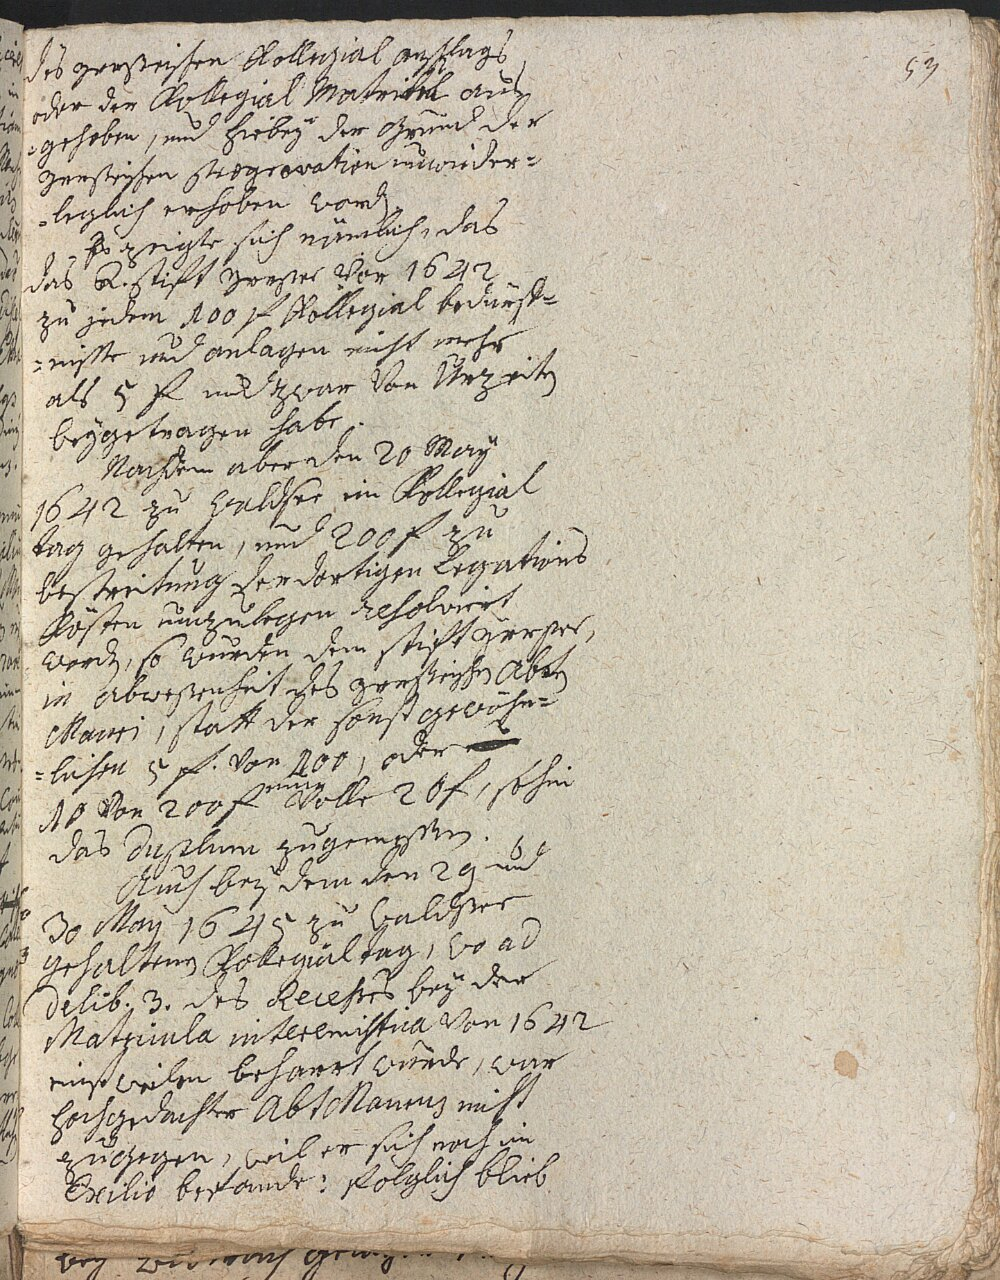 53
des zeitherigen Kollegial anschlags,
oder der Kollegial Matrikul aus
=gehoben, und hiebey der Grund der
Praegravation unwieder=
=leglich erhoben word.
Es zeigte sich nämlich, das
das R. stift vor 1642
zu jedem 100 f Kollegial bedürf=
=nisse und anlagen nicht mehr
als 5 f und zwar von Urzeiten
beygetragen habe.
Nachdem aber den 20 May
1642 zu Waldsee ein Kollegial
tag gehalten, und 200 f zu
bestreitung der dortigen Legations
Kösten umzulegen resolviert
word, so wurden dem stift
in abwesenheit des Abten
Mauri, statt der sonst gewöhn=
=lichen 5 f. von 100, oder
10 von 200 f nun volle 20 f, sohin
das Duplum zugemessen.
Auch bey dem den 29 und
30 May 1645 zu Waldsee
gehaltenen Kollegialtag, wo ad
Delib. 3. des Recesses bey der
Matricula interimistica von 1642
einstweilen beharret wurde, war
hochgedachter Abt Maurus nicht
zugegen, weil er sich noch im
Exilio befande: folglich blieb